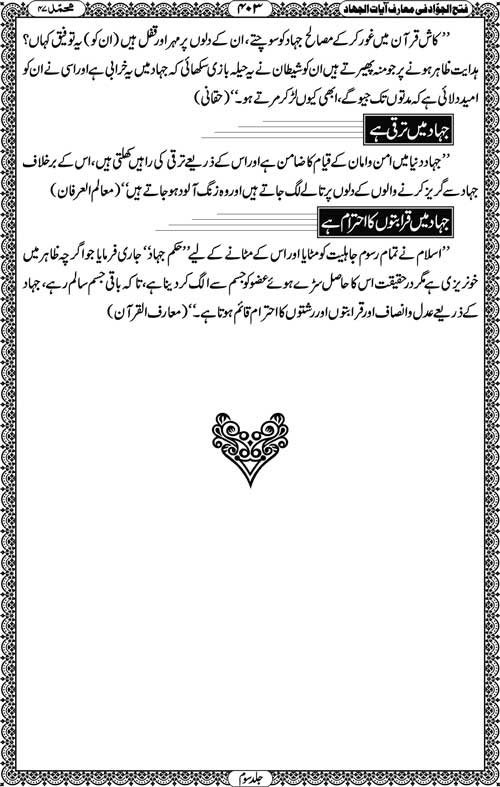 فتح الجوّاد فی معارف آیات الجهاد ۴۰۳ محمّد ۴۷
’’کاش قرآن میں غور کر کے مصالح جہاد کو سوچتے، ان کے دلوں پر مہر اور قفل ہیں (ان کو) یہ توفیق کہاں؟
ہدایت ظاہر ہونے پر جو منہ پھیرتے ہیں ان کو شیطان نے یہ حیلہ بازی سکھائی کہ جہاد میں یہ خرابی ہے اور اسی نے ان کو
امید دلائی ہے کہ مدتوں تک جیو گے، ابھی کیوں لڑ کر مرتے ہو۔‘‘ (حقانی)
جہاد میں ترقی ہے
’’جہاد دنیا میں امن و امان کے قیام کا ضامن ہے اور اس کے ذریعے ترقی کی راہیں کھلتی ہیں، اس کے برخلاف
جہاد سے گریز کرنے والوں کے دلوں پر تالے لگ جاتے ہیں اور وہ زنگ آلود ہو جاتے ہیں‘‘ (معالم العرفان)
جہاد میں قرابتوں کا احترام ہے
’’اسلام نے تمام رسوم جاہلیت کو مٹایا اور اس کے مٹانے کے لیے ’’حکم جہاد‘‘ جاری فرمایا جو اگرچہ ظاہر میں
خونریزی ہے مگر در حقیقت اس کا حاصل سڑے ہوئے عضو کو جسم سے الگ کر دینا ہے، تاکہ باقی جسم سالم رہے، جہاد
کے ذریعے عدل و انصاف اور قرابتوں اور رشتوں کا احترام قائم ہوتا ہے۔‘‘ (معارف القرآن)
جلد سوم